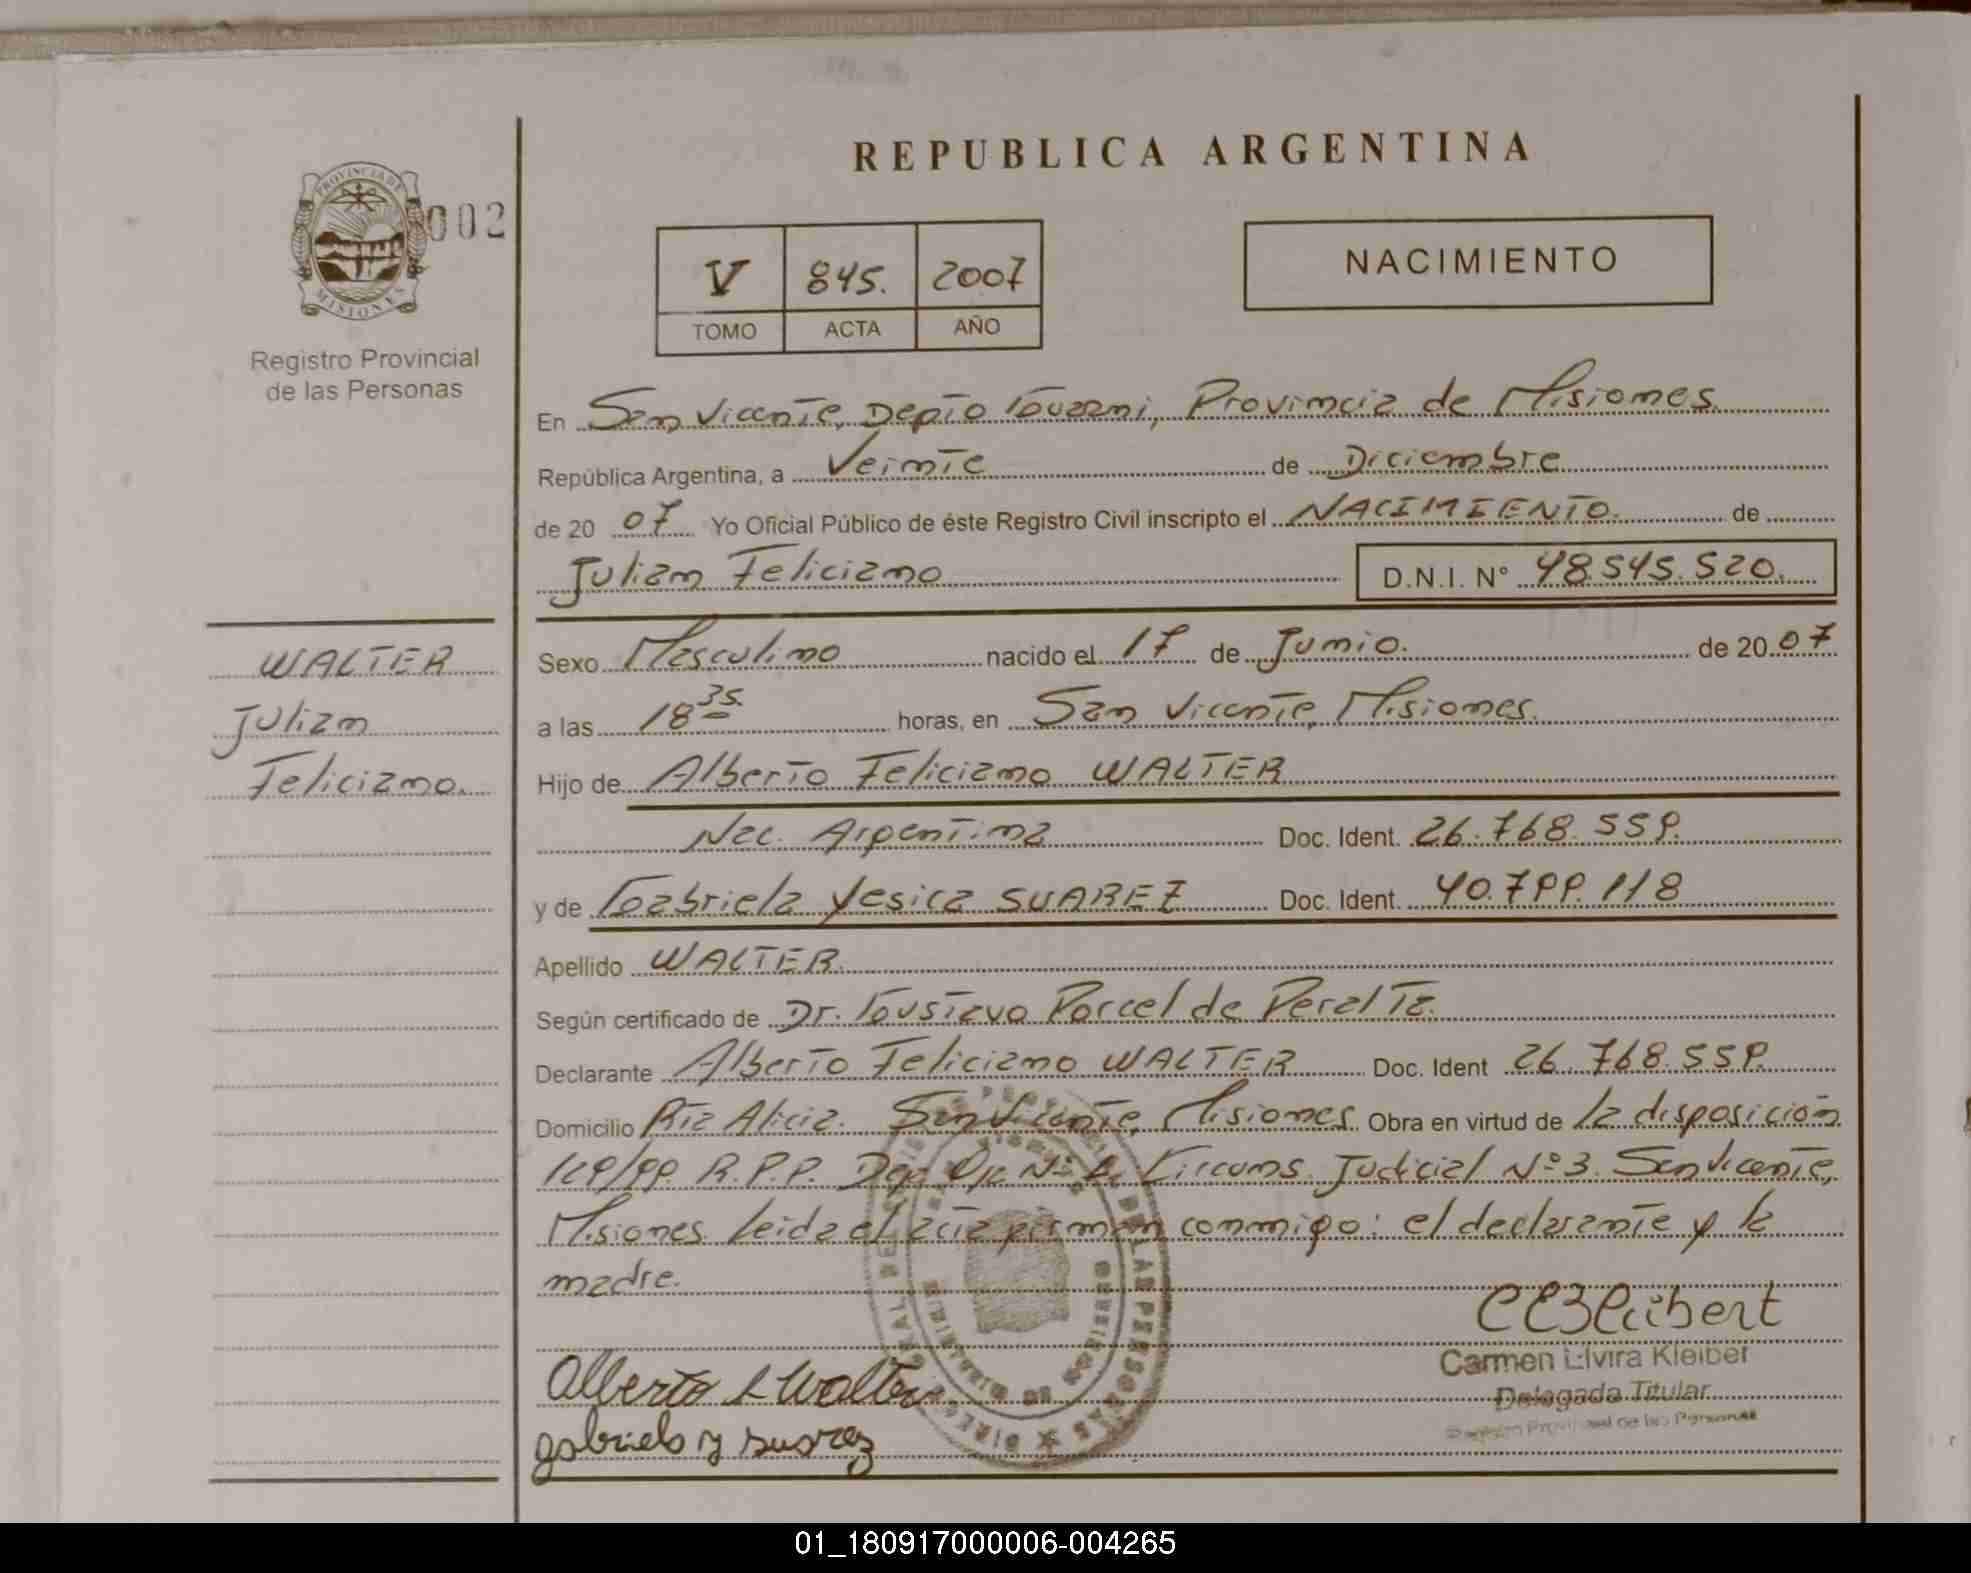 REPUBLICA ARGENTINA
PROVINCIA DE
MISIONES
002
Registro Provincial
de las Personas
V 845. 2007
TOMO ACTA AÑO
NACIMIENTO
En San Vicente, Depto Guarani, Provincia de Misiones
República Argentina, a Veinte de Diciembre
de 20 07 Yo Oficial Público de éste Registro Civil inscripto el NACIMIENTO de
Julian Feliciano D.N.I. N° 48.545.520.
WALTER
Julian
Feliciano.
Sexo Masculino nacido el 17 de Junio. de 20 07
a las 18 35 horas, en San Vicente, Misiones.
Hijo de Alberto Feliciano WALTER
Nac. Argentina Doc. Ident. 26.768.559.
y de Gabriela Yesica SUAREZ Doc. Ident. 40.799.118
Apellido WALTER.
Según certificado de Dr. Gustavo Porcel de Peralta.
Declarante Alberto Feliciano WALTER Doc. Ident 26.768.559.
Domicilio Pta Alicia. San Vicente, Misiones Obra en virtud de la disposición
129/99. R.P.P. N° Circuns. Judicial N° 3. San Vicente,
Misiones. Leida el acta firman conmigo: el declarante y la
madre.
Alberto Walter
gabriela y suarez
Carmen Elvira Kleiber
Delegada Titular
Registro Provincial de las Personas
01_180917000006-004265